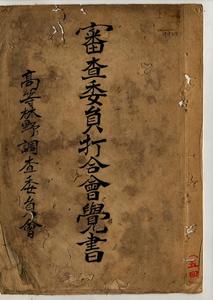 審査委員打合會覺書
高等林野調査委員會